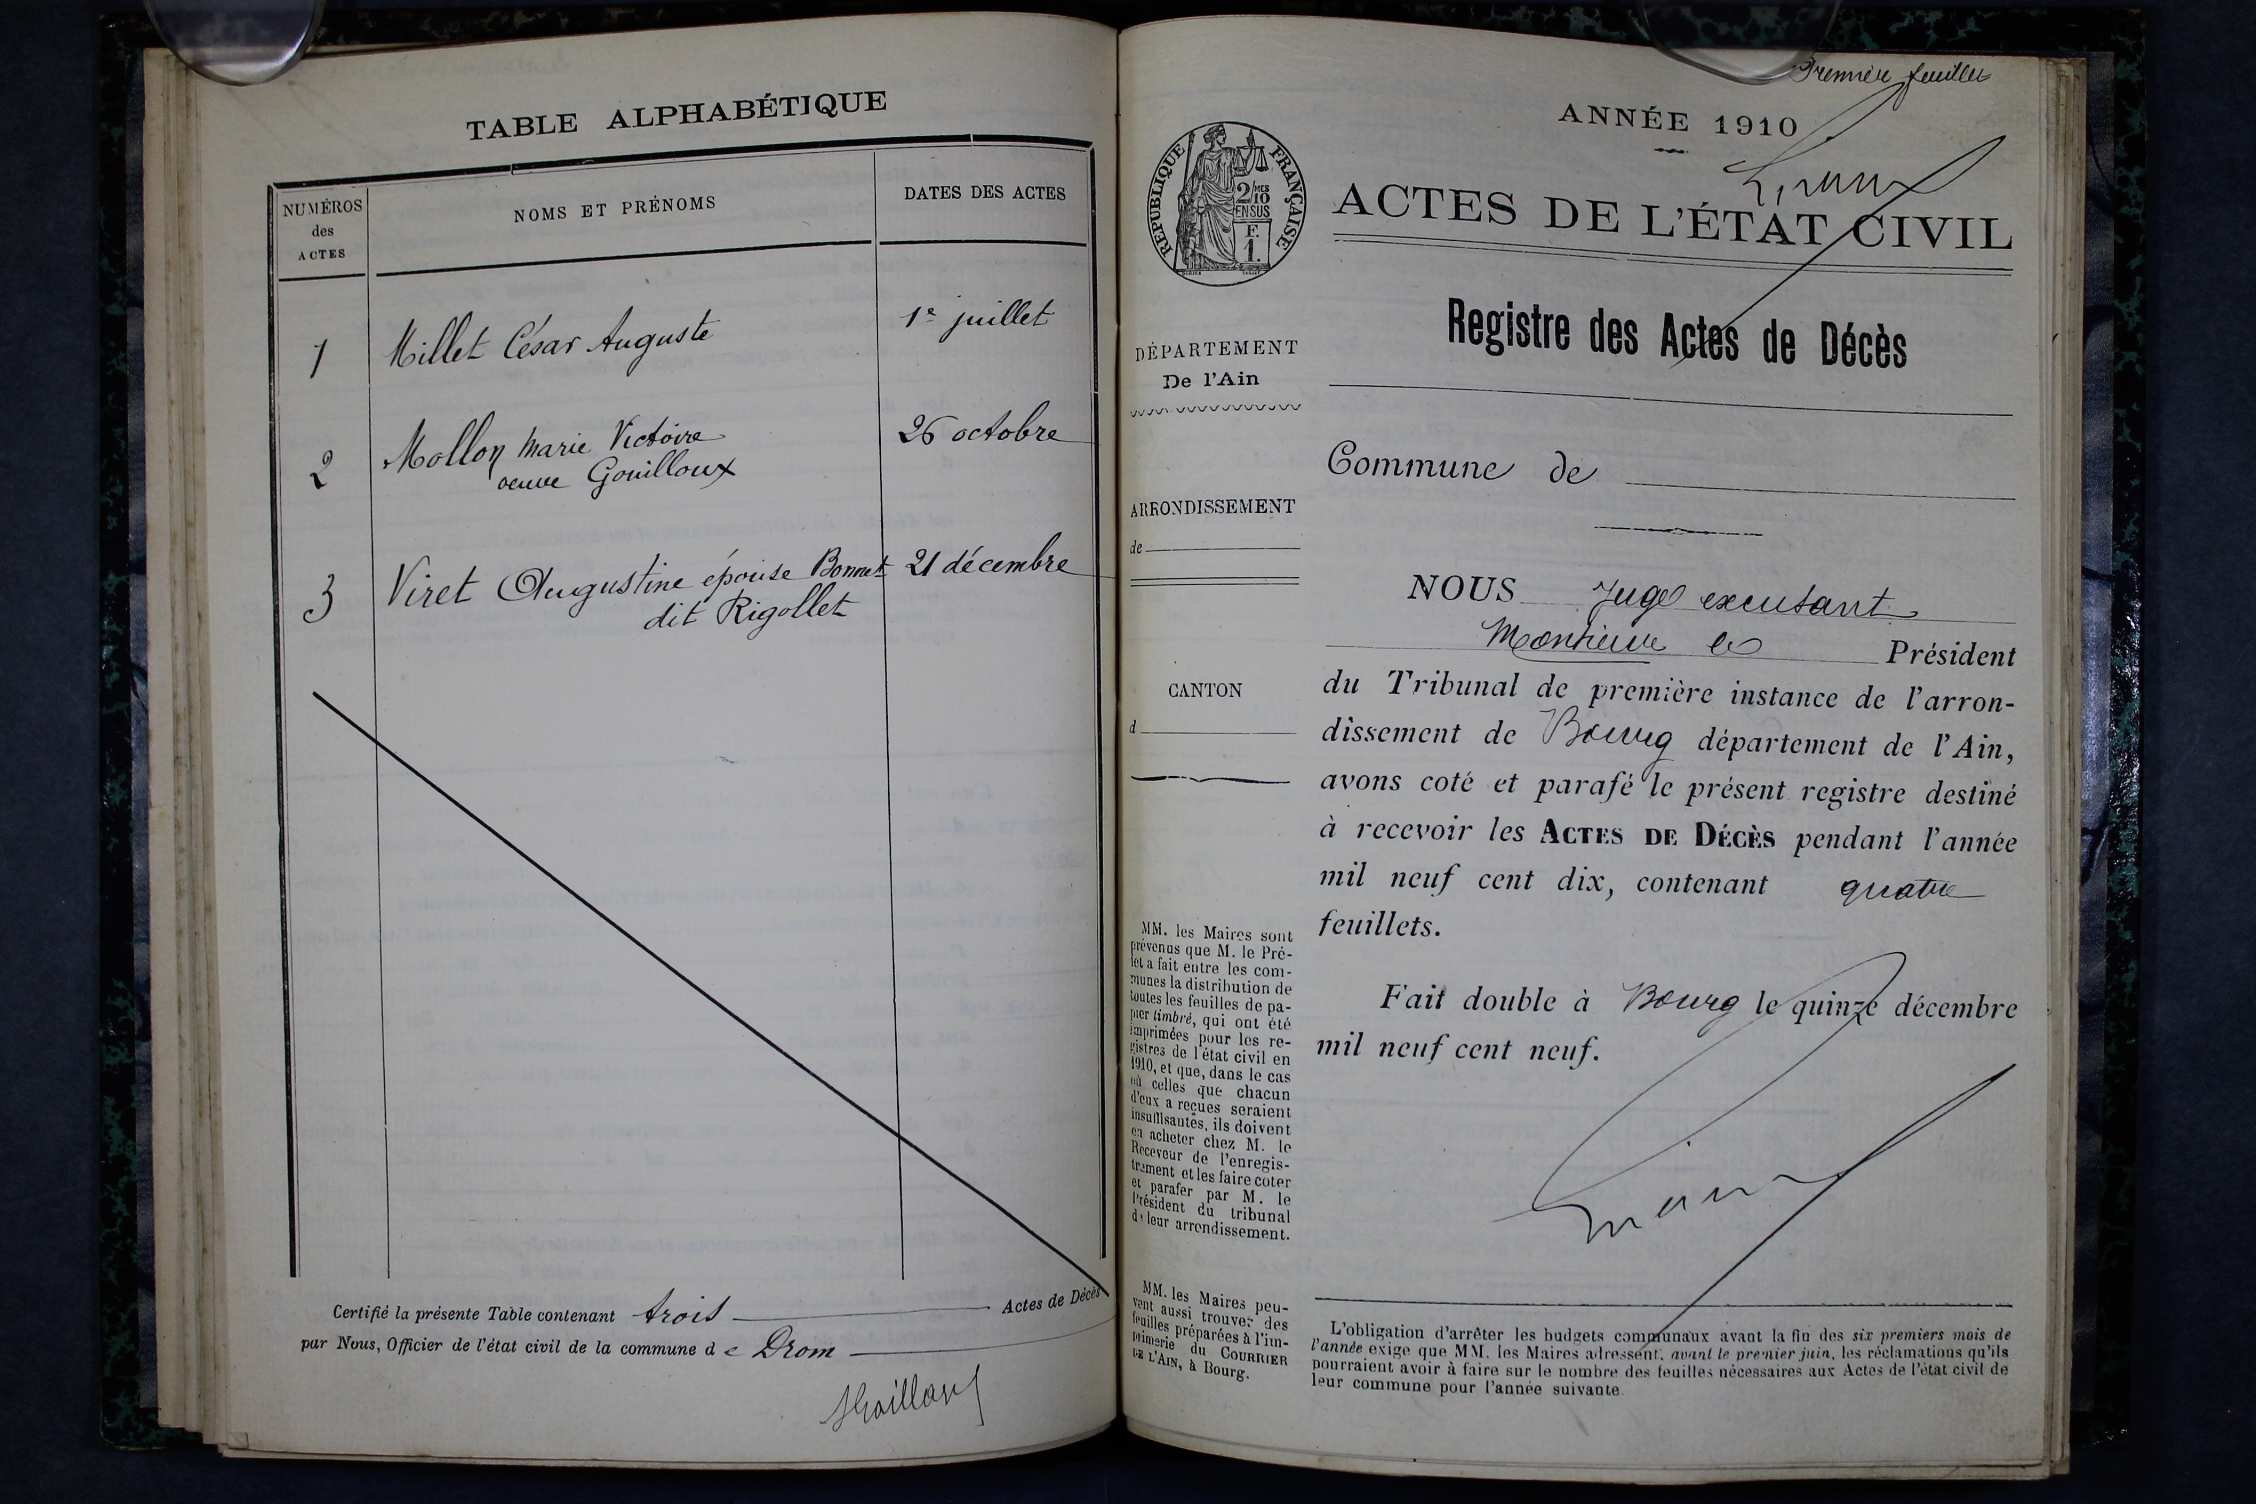 TABLE ALPHABÉTIQUE
NUMÉROS
des
ACTES
NOMS ET PRÉNOMS
DATES DES ACTES
1 Millet César Auguste 1e juillet
2 Mollon Marie Victoire 26 octobre
veuve Gouilloux
3 Viret Augustine épouse Bonnet 21 décembre
dit Rigollet
Certifié la présente Table contenant trois Actes de Décès
par Nous, Officier de l'état civil de la commune de Drom
Première feuillet
ANNÉE 1910
RÉPUBLIQUE FRANÇAISE
2/10
MES
EN SUS
F.
1.
ACTES DE L'ÉTAT CIVIL
Registre des Actes de Décès
DÉPARTEMENT
De l'Ain
Commune de
ARRONDISSEMENT
de
CANTON
d
NOUS Juge excusant
Monsieur le Président
du Tribunal de première instance de l'arron-
dissement de Bourg département de l'Ain,
avons coté et parafé le présent registre destiné
à recevoir les ACTES DE DÉCÈS pendant l'année
mil neuf cent dix, contenant quatre
feuillets.
Fait double à Bourg le quinze décembre
mil neuf cent neuf.
MM. les Maires sont
prévenus que M. le Pré-
fet a fait entre les com-
munes la distribution de
toutes les feuilles de pa-
pier timbré, qui ont été
imprimées pour les re-
gistres de l'état civil en
1910, et que, dans le cas
où celles que chacun
d'eux a reçues seraient
insuffisantes, ils doivent
en acheter chez M. le
Receveur de l'enregis-
trement et les faire coter
et parafer par M. le
Président du tribunal
de leur arrondissement.
MM. les Maires peu-
vent aussi trouver des
feuilles préparées à l'im-
primerie du COURRIER
DE L'AIN, à Bourg.
L'obligation d'arrêter les budgets communaux avant la fin des six premiers mois de
l'année exige que MM. les Maires adressent, avant le premier juin, les réclamations qu'ils
pourraient avoir à faire sur le nombre des feuilles nécessaires aux Actes de l'état civil de
leur commune pour l'année suivante.